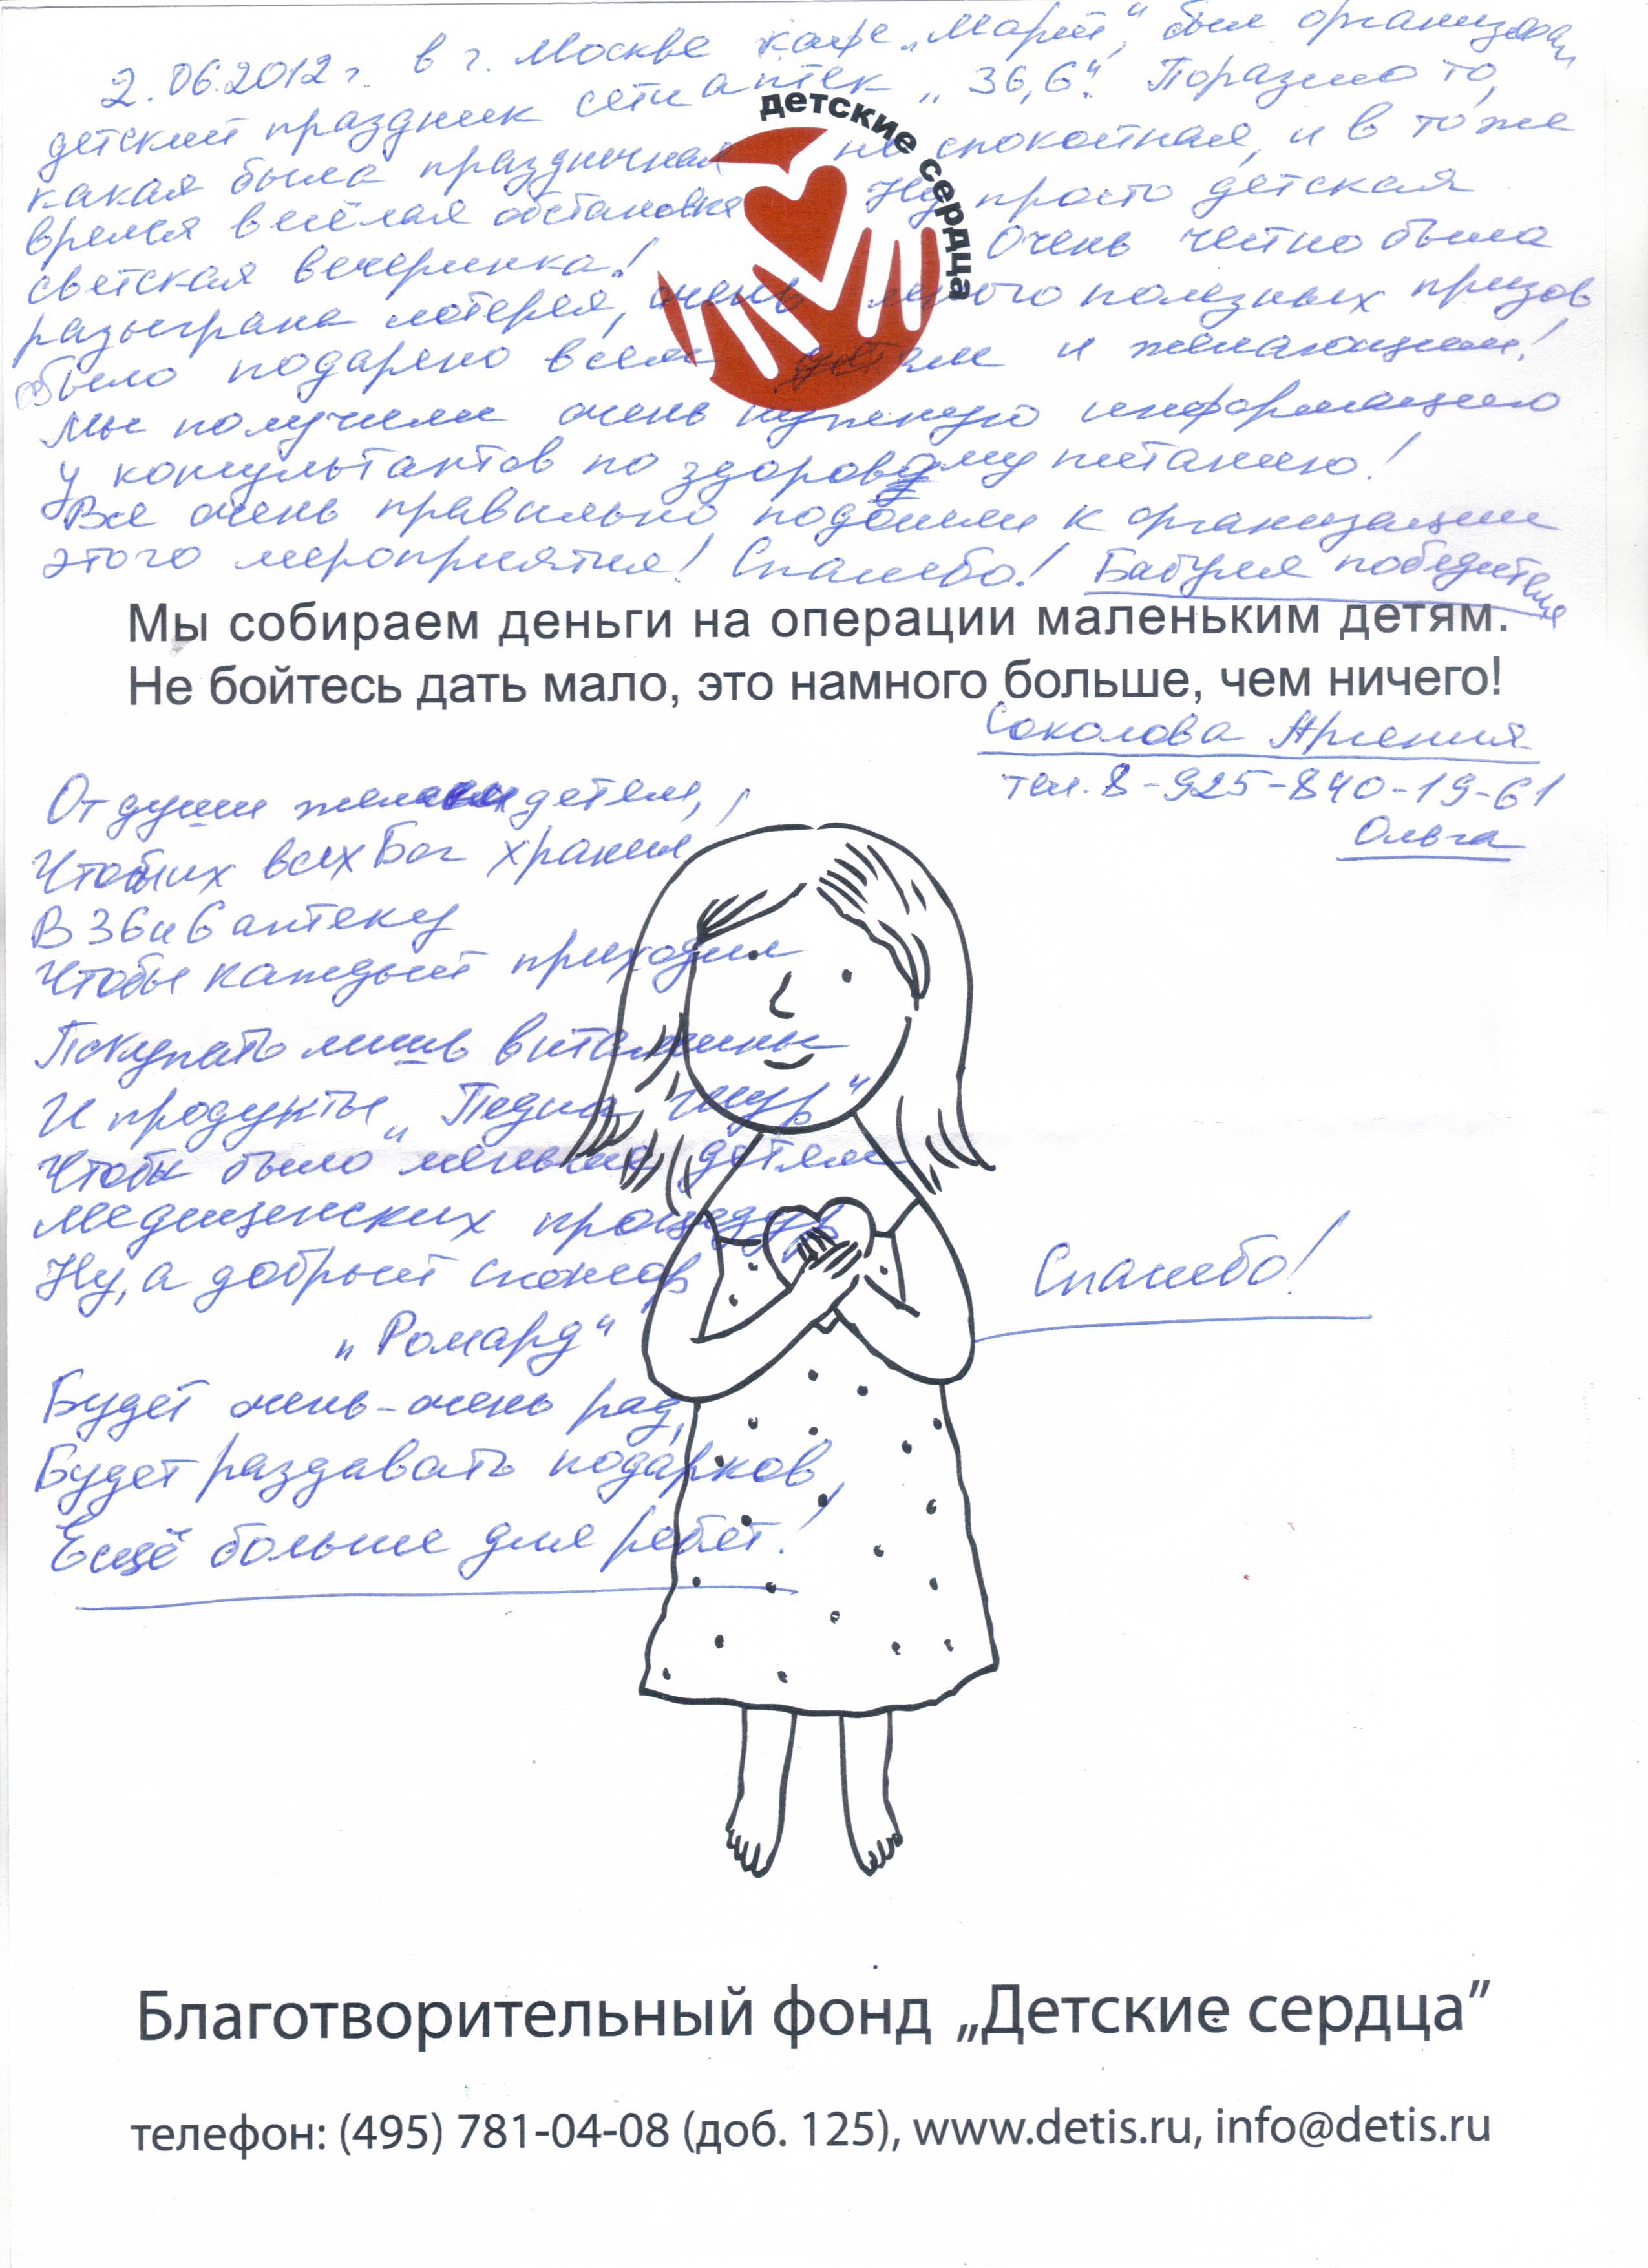 2.06.2012 г. в г. Москве кафе „Марти“, был организован
детский праздник сети аптек „36,6“. Поразило то,
какая была праздничная но спокойная, и в тоже
время весёлая обстановка Ну просто детская
светская вечеринка! Очень честно была
разыграна лотерея, очень много полезных призов
было подарено всем детям и желающим!
Мы получили очень нужную информацию
у консультантов по здоровому питанию!
Все очень правильно подошли к организации
этого мероприятия! Спасибо! Бабуля победителя
детские сердца
Мы собираем деньги на операции маленьким детям.
Не бойтесь дать мало, это намного больше, чем ничего!
Соколова Арсения
тел. 8-925-840-19-61
Ольга
От души желаем детям,
Чтоб их всех Бог хранил,
В 36 и 6 аптеку
Чтобы каждый приходил
Покупать лишь витамины
И продукты „Педиа шур“
Чтобы было меньше детям
Медицинских процедур
Ну, а добрый спонсор
„Ромард“
Будет очень-очень рад,
Будет раздавать подарков,
Ещё больше для ребят!
Спасибо!
Благотворительный фонд „Детские сердца”
телефон: (495) 781-04-08 (доб. 125), www.detis.ru, info@detis.ru